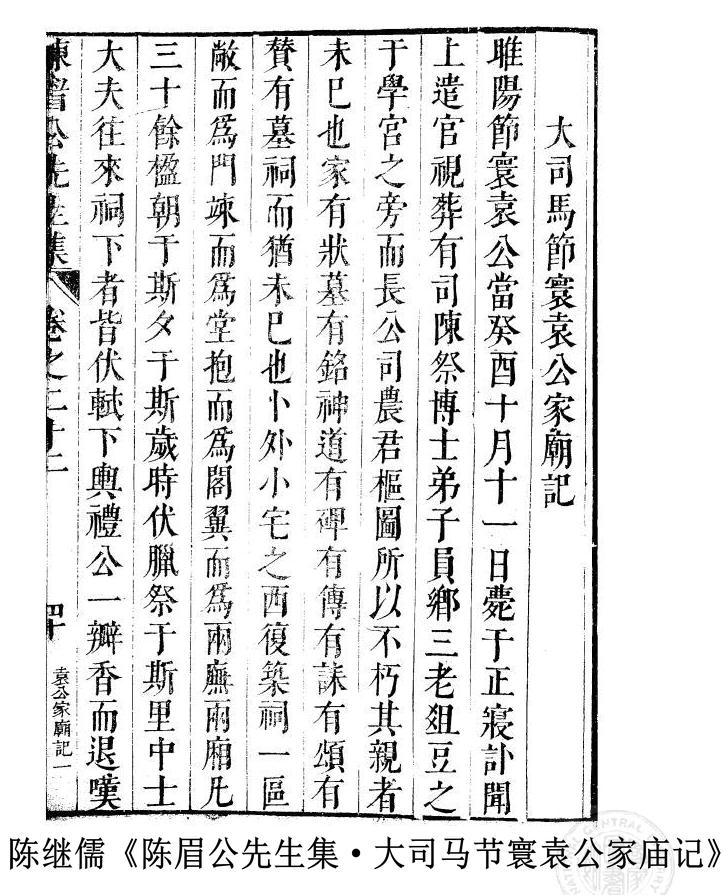 大司馬節寰袁公家廟記
睢陽節寰袁公當癸酉十月十一日薨于正寢訃聞
上遣官視葬有司陳祭博士弟子員鄉三老俎豆之
于學宮之旁而長公司農君樞圖所以不朽其親者
未巳也家有狀墓有銘神道有碑有傳有誄有頌有
贊有墓祠而猶未巳也卜外小宅之西復築祠一區
敞而為門竦而為堂抱而為閣翼而為兩廡兩廂凡
三十餘楹朝于斯夕于斯歲時伏臘祭于斯里中士
大夫往來祠下者皆伏軾下輿禮公一瓣香而退嘆
陳眉公先生集 卷之二十二 四十 袁公家廟記一
陈继儒《陈眉公先生集·大司马节寰袁公家庙记》